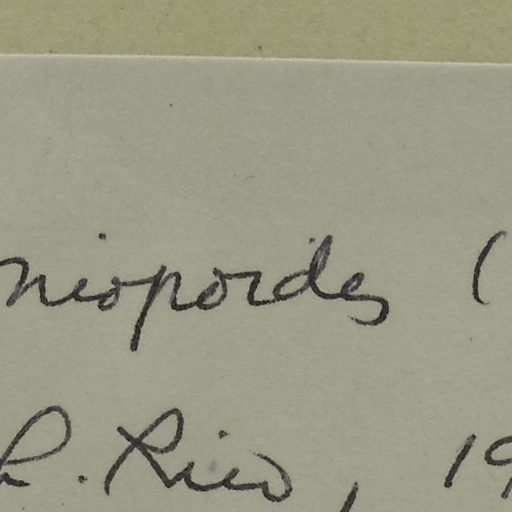 niopoides (
R. Rico, 19